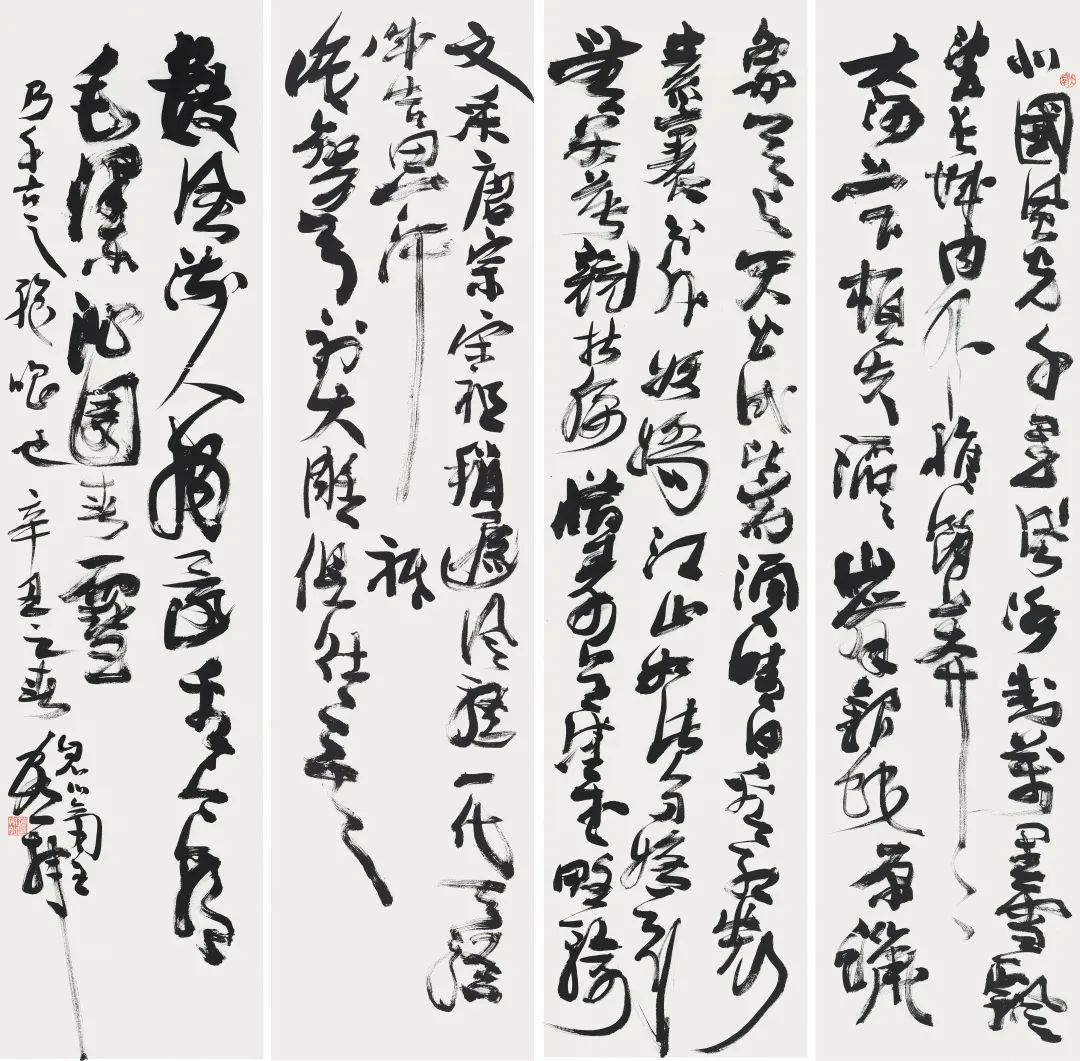 北國風光千里冰封萬里雪飄
望長城内外惟餘莽莽
大河上下頓失滔滔山舞銀蛇原馳蠟
象欲與天公試比高須晴日看紅裝
素裹分外妖嬈江山如此多嬌引
無數英雄競折腰惜秦皇漢武略輸
文采唐宗宋祖稍遜風騷一代天驕
成吉思汗祇
識彎弓射大雕俱往矣
數風流人物還看今朝
毛澤東沁園春雪
乃千古之絶唱也辛丑之春